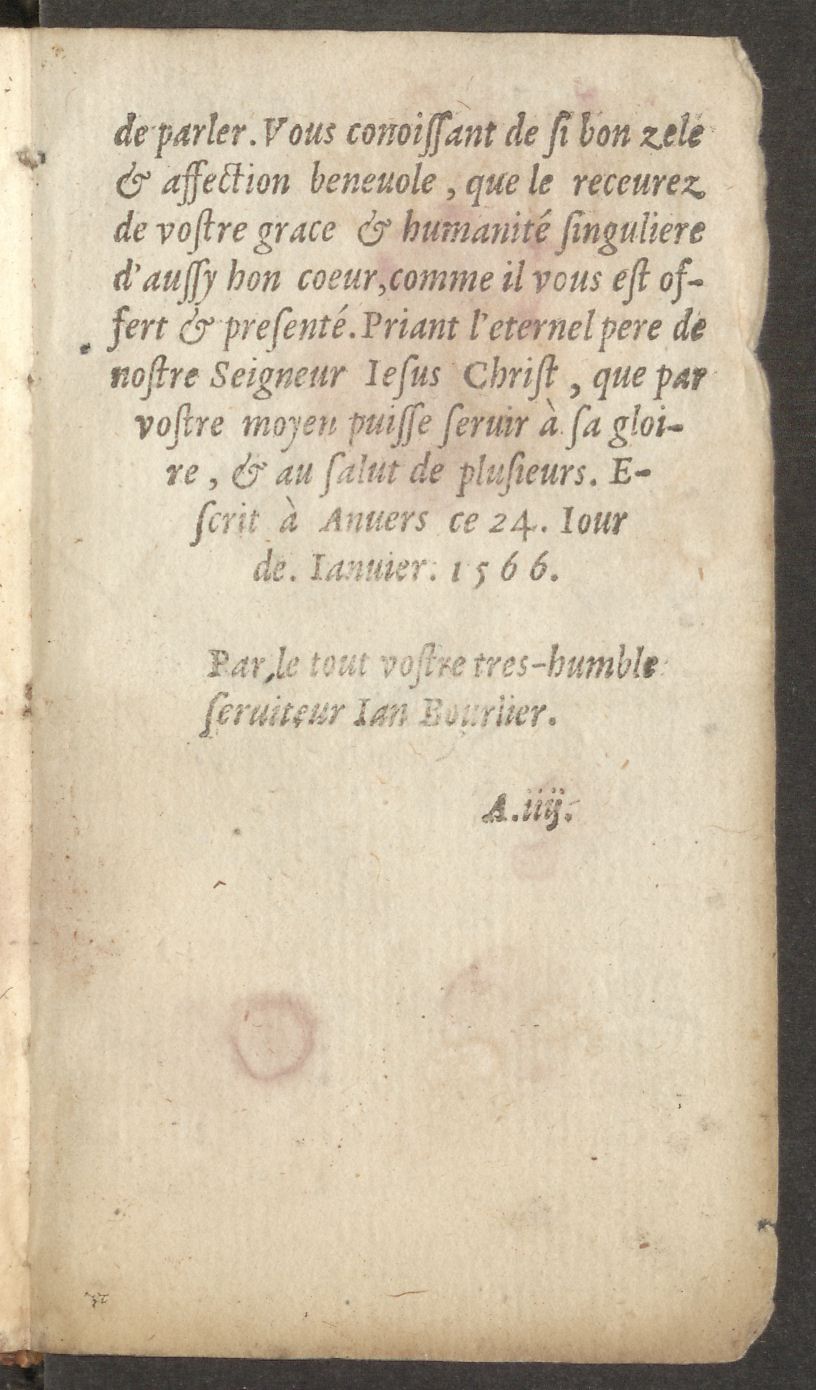 de parler. Vous conoiſſant de ſi bon zele
& affection beneuole, que le receurez
de voſtre grace & humanité ſinguliere
d'auſſy bon coeur, comme il vous eſt of-
fert & preſenté. Priant l'eternel pere de
noſtre Seigneur Ieſus Chriſt, que par
voſtre moyen puiſſe ſeruir à ſa gloi-
re, & au ſalut de pluſieurs. E-
ſcrit à Anuers ce 24. Iour
de. Ianuier. 1566.
Par, le tout voſtre tres-humble
ſeruiteur Ian
A.iiij.